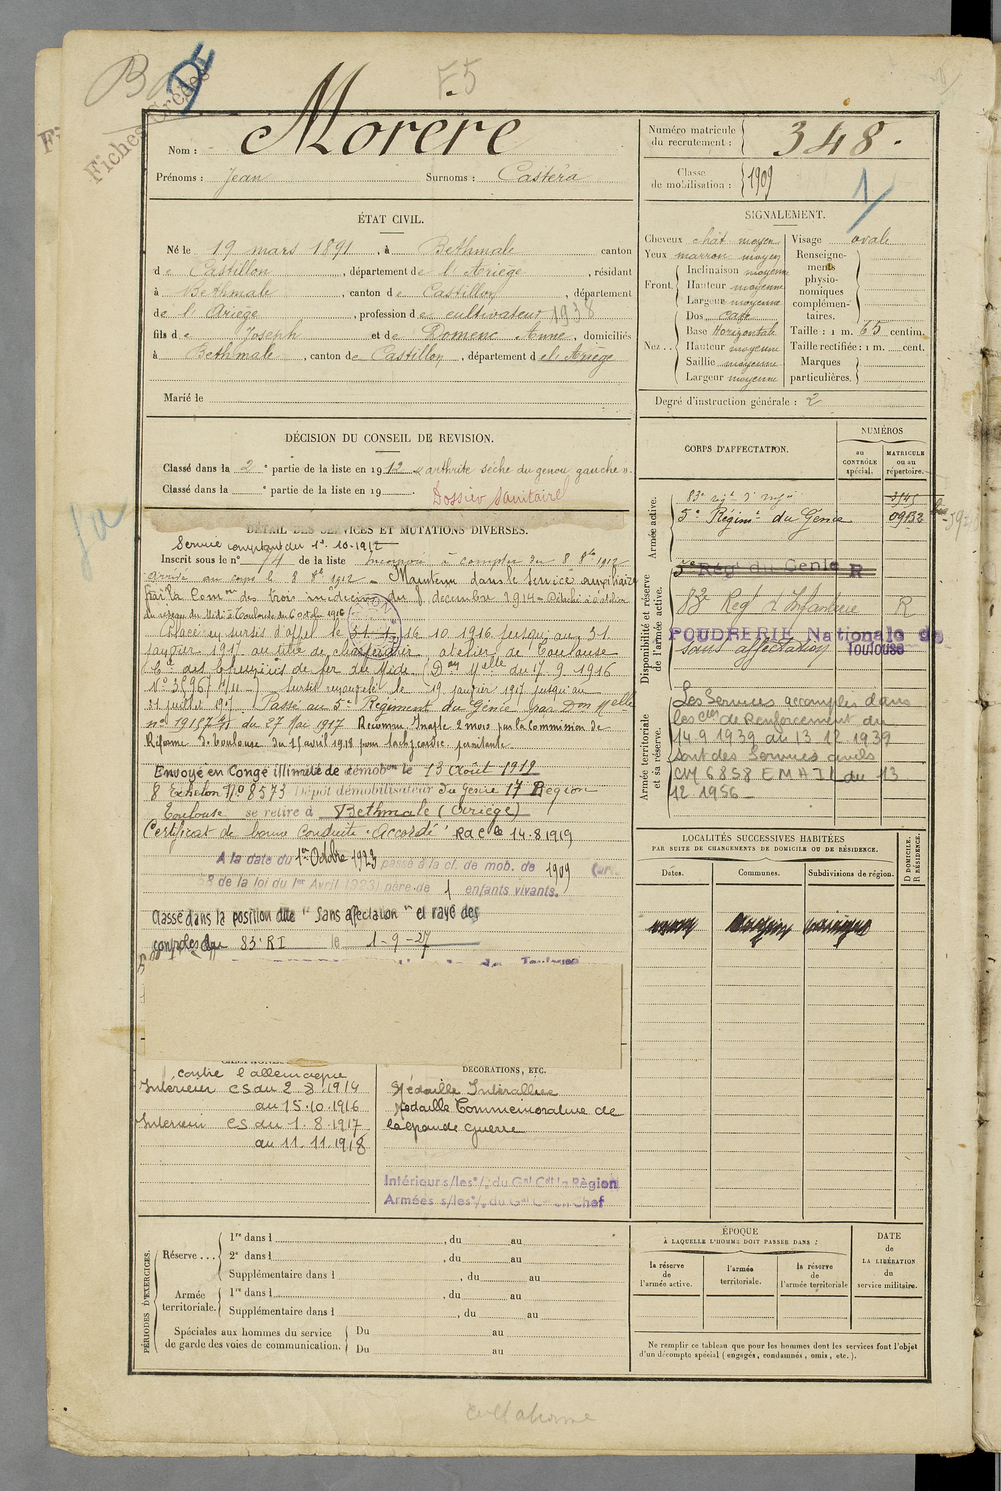 F.5
Fiches
Nom : Morère
Prénoms : Jean Surnoms : Castéra
Numéro matricule du recrutement : 348.
Classe de mobilisation : 1909
1
ÉTAT CIVIL.
Né le 19 mars 1891, à Bethmale canton
de Castillon, département de l'Ariège, résidant
à Bethmale, canton de Castillon, département
de l'Ariège, profession de cultivateur 1938
fils de Joseph et de Domenc Anne, domiciliés
à Bethmale, canton de Castillon, département de l'Ariège
Marié le
SIGNALEMENT.
Cheveux chât moyen
Yeux marron moyen
Front. Inclinaison moyenne
Hauteur moyenne
Largeur moyenne
Nez .. Dos cave
Base Horizontale
Hauteur moyenne
Saillie moyenne
Largeur moyenne
Visage ovale
Renseignements physionomiques complémentaires.
Taille : 1 m. 65 centim.
Taille rectifiée : 1 m. cent.
Marques particulières.
Degré d'instruction générale : 2
DÉCISION DU CONSEIL DE REVISION.
Classé dans la 2e partie de la liste en 1912 « arthrite sèche du genou gauche ».
Classé dans la e partie de la liste en 19
Dossier sanitaire
DÉTAIL DES SERVICES ET MUTATIONS DIVERSES.
Service comptant du 1er.10.1912
Inscrit sous le n° 14 de la liste Incorporé à compter du 8 8bre 1912
Arrivé au corps le 8 8bre 1912 _ Maintenu dans le service auxiliaire
par la Comon des trois médecins du 8 décembre 1914 _ Détaché à l'atelier
du réseau du Midi à Toulouse du 6 octobre 1916
Placé en sursis d'appel le 16 10 1916 jusqu'au 31
janvier 1917 au titre de atelier de Toulouse
Cie des Chemins de fer du Midi (Don Mlle du 17.9.1916
Sursis renouvelé le 19 janvier 1917 jusqu'au
31 juillet 1917. Passé au 5e Régiment du Génie par Don Mlle
du 27 Mai 1917 Reconnu Inapte 2 mois par la Commission de
Réforme de Toulouse du 15 avril 1918 pour tachycardie persistante.
Envoyé en Congé illimité de démobon le 13 Août 1919
8e Echelon No 8573 Dépôt démobilisateur du Génie 17e Région
Toulouse se retire à Bethmale (Ariège)
Certificat de bonne Conduite "Accordé" RdC le 14.8.1919
A la date du 1er Octobre 1923 passé à la cl. de mob. de 1909 (art.
58 de la loi du 1er Avril 1923) père de 1 enfants vivants.
Classé dans la position dite "Sans affectation" et rayé des
contrôles du 83e RI le 1-9-27
CORPS D'AFFECTATION.
NUMÉROS
au CONTRÔLE spécial.
MATRICULE ou au répertoire.
Armée active.
83e régt d'infie
5e Régimt du Génie 09132
Disponibilité et réserve de l'armée active.
5e Régt du Génie R
83e Regt d'Infanterie R
POUDRERIE Nationale de Toulouse
sans affectation
Armée territoriale et sa réserve.
Les Services accomplis dans
les Cies de Renforcement du
14.9.1939 au 13 12 1939
sont des Services civils
CM 6858 EMA IL du 13
12 1956_
LOCALITÉS SUCCESSIVES HABITÉES
PAR SUITE DE CHANGEMENTS DE DOMICILE OU DE RÉSIDENCE.
Dates. Communes. Subdivisions de région.
D DOMICILE. R RÉSIDENCE.
contre l'allemagne
Intérieur CS du 2.8.1914
au 15.10.1916
Intérieur CS du 1.8.1917
au 11.11.1918
DÉCORATIONS, ETC.
Médaille Interalliée
Médaille Commémorative de
la grande guerre
Intérieur s/les o/ du Gal Cdt la Région
Armées s/les o/ du Gal Cdt en Chef
PÉRIODES D'EXERCICES.
Réserve ... 1re dans l , du au
2e dans l , du au
Supplémentaire dans l , du au
Armée territoriale. 1re dans l , du au
Supplémentaire dans l , du au
Spéciales aux hommes du service de garde des voies de communication. Du au
Du au
ÉPOQUE
À LAQUELLE L'HOMME DOIT PASSER DANS :
la réserve de l'armée active.
l'armée territoriale.
la réserve de l'armée territoriale
DATE de LA LIBÉRATION du service militaire.
Ne remplir ce tableau que pour les hommes dont les services font l'objet
d'un décompte spécial (engagés, condamnés, omis, etc.).